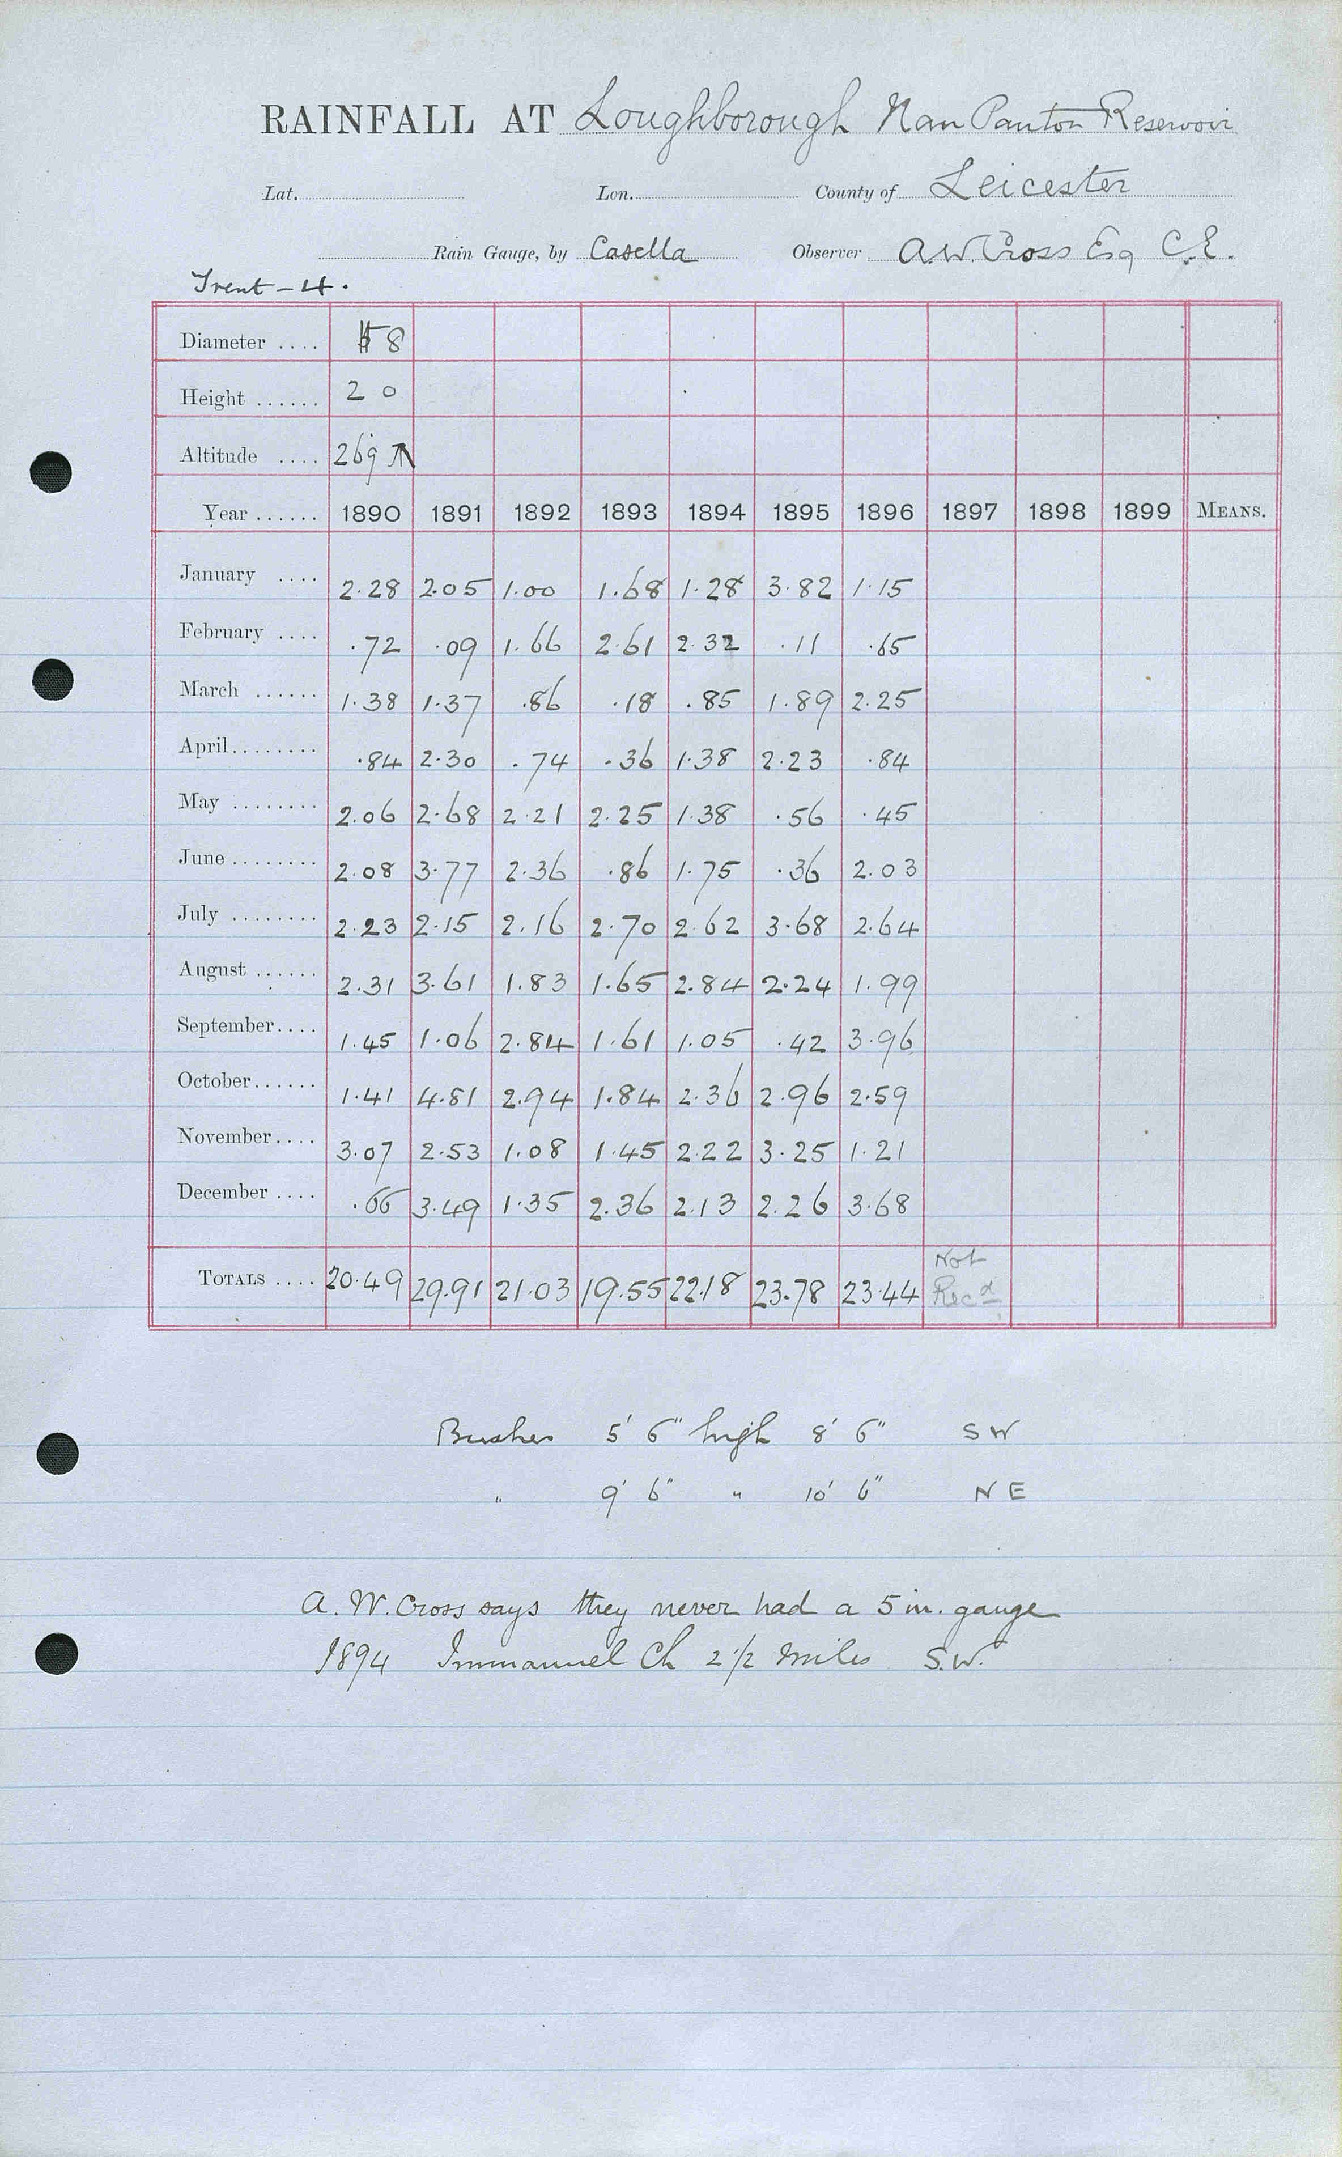 RAINFALL AT Loughborough Nan Panton Reservoir
Lat. Lon. County of Leicester
Rain Gauge, by Casella Observer A.W. Cross Esq C.E.
Trent - 4.
Diameter .... 8
Height ...... 2 0
Altitude .... 269
Year ...... 1890 1891 1892 1893 1894 1895 1896 1897 1898 1899 MEANS.
January .... 2.28 2.05 1.00 1.68 1.28 3.82 1.15
February .... .72 .09 1.66 2.61 2.32 .11 .65
March ...... 1.38 1.37 .86 .18 .85 1.89 2.25
April ........ .84 2.30 .74 .36 1.38 2.23 .84
May ........ 2.06 2.68 2.21 2.25 1.38 .56 .45
June ........ 2.08 3.77 2.36 .86 1.75 .36 2.03
July ........ 2.23 2.15 2.16 2.70 2.62 3.68 2.64
August ...... 2.31 3.61 1.83 1.65 2.84 2.24 1.99
September.... 1.45 1.06 2.84 1.61 1.05 .42 3.96
October...... 1.41 4.81 2.94 1.84 2.36 2.96 2.59
November.... 3.07 2.53 1.08 1.45 2.22 3.25 1.21
December .... .66 3.49 1.35 2.36 2.13 2.26 3.68
TOTALS .... 20.49 29.91 21.03 19.55 22.18 23.78 23.44 Not Recd
Bushes 5' 6" high 8' 6" SW
" 9' 6" " 10' 6" NE
A. W. Cross says they never had a 5 in. gauge
1894 Immanuel Ch 2 1/2 miles S.W.